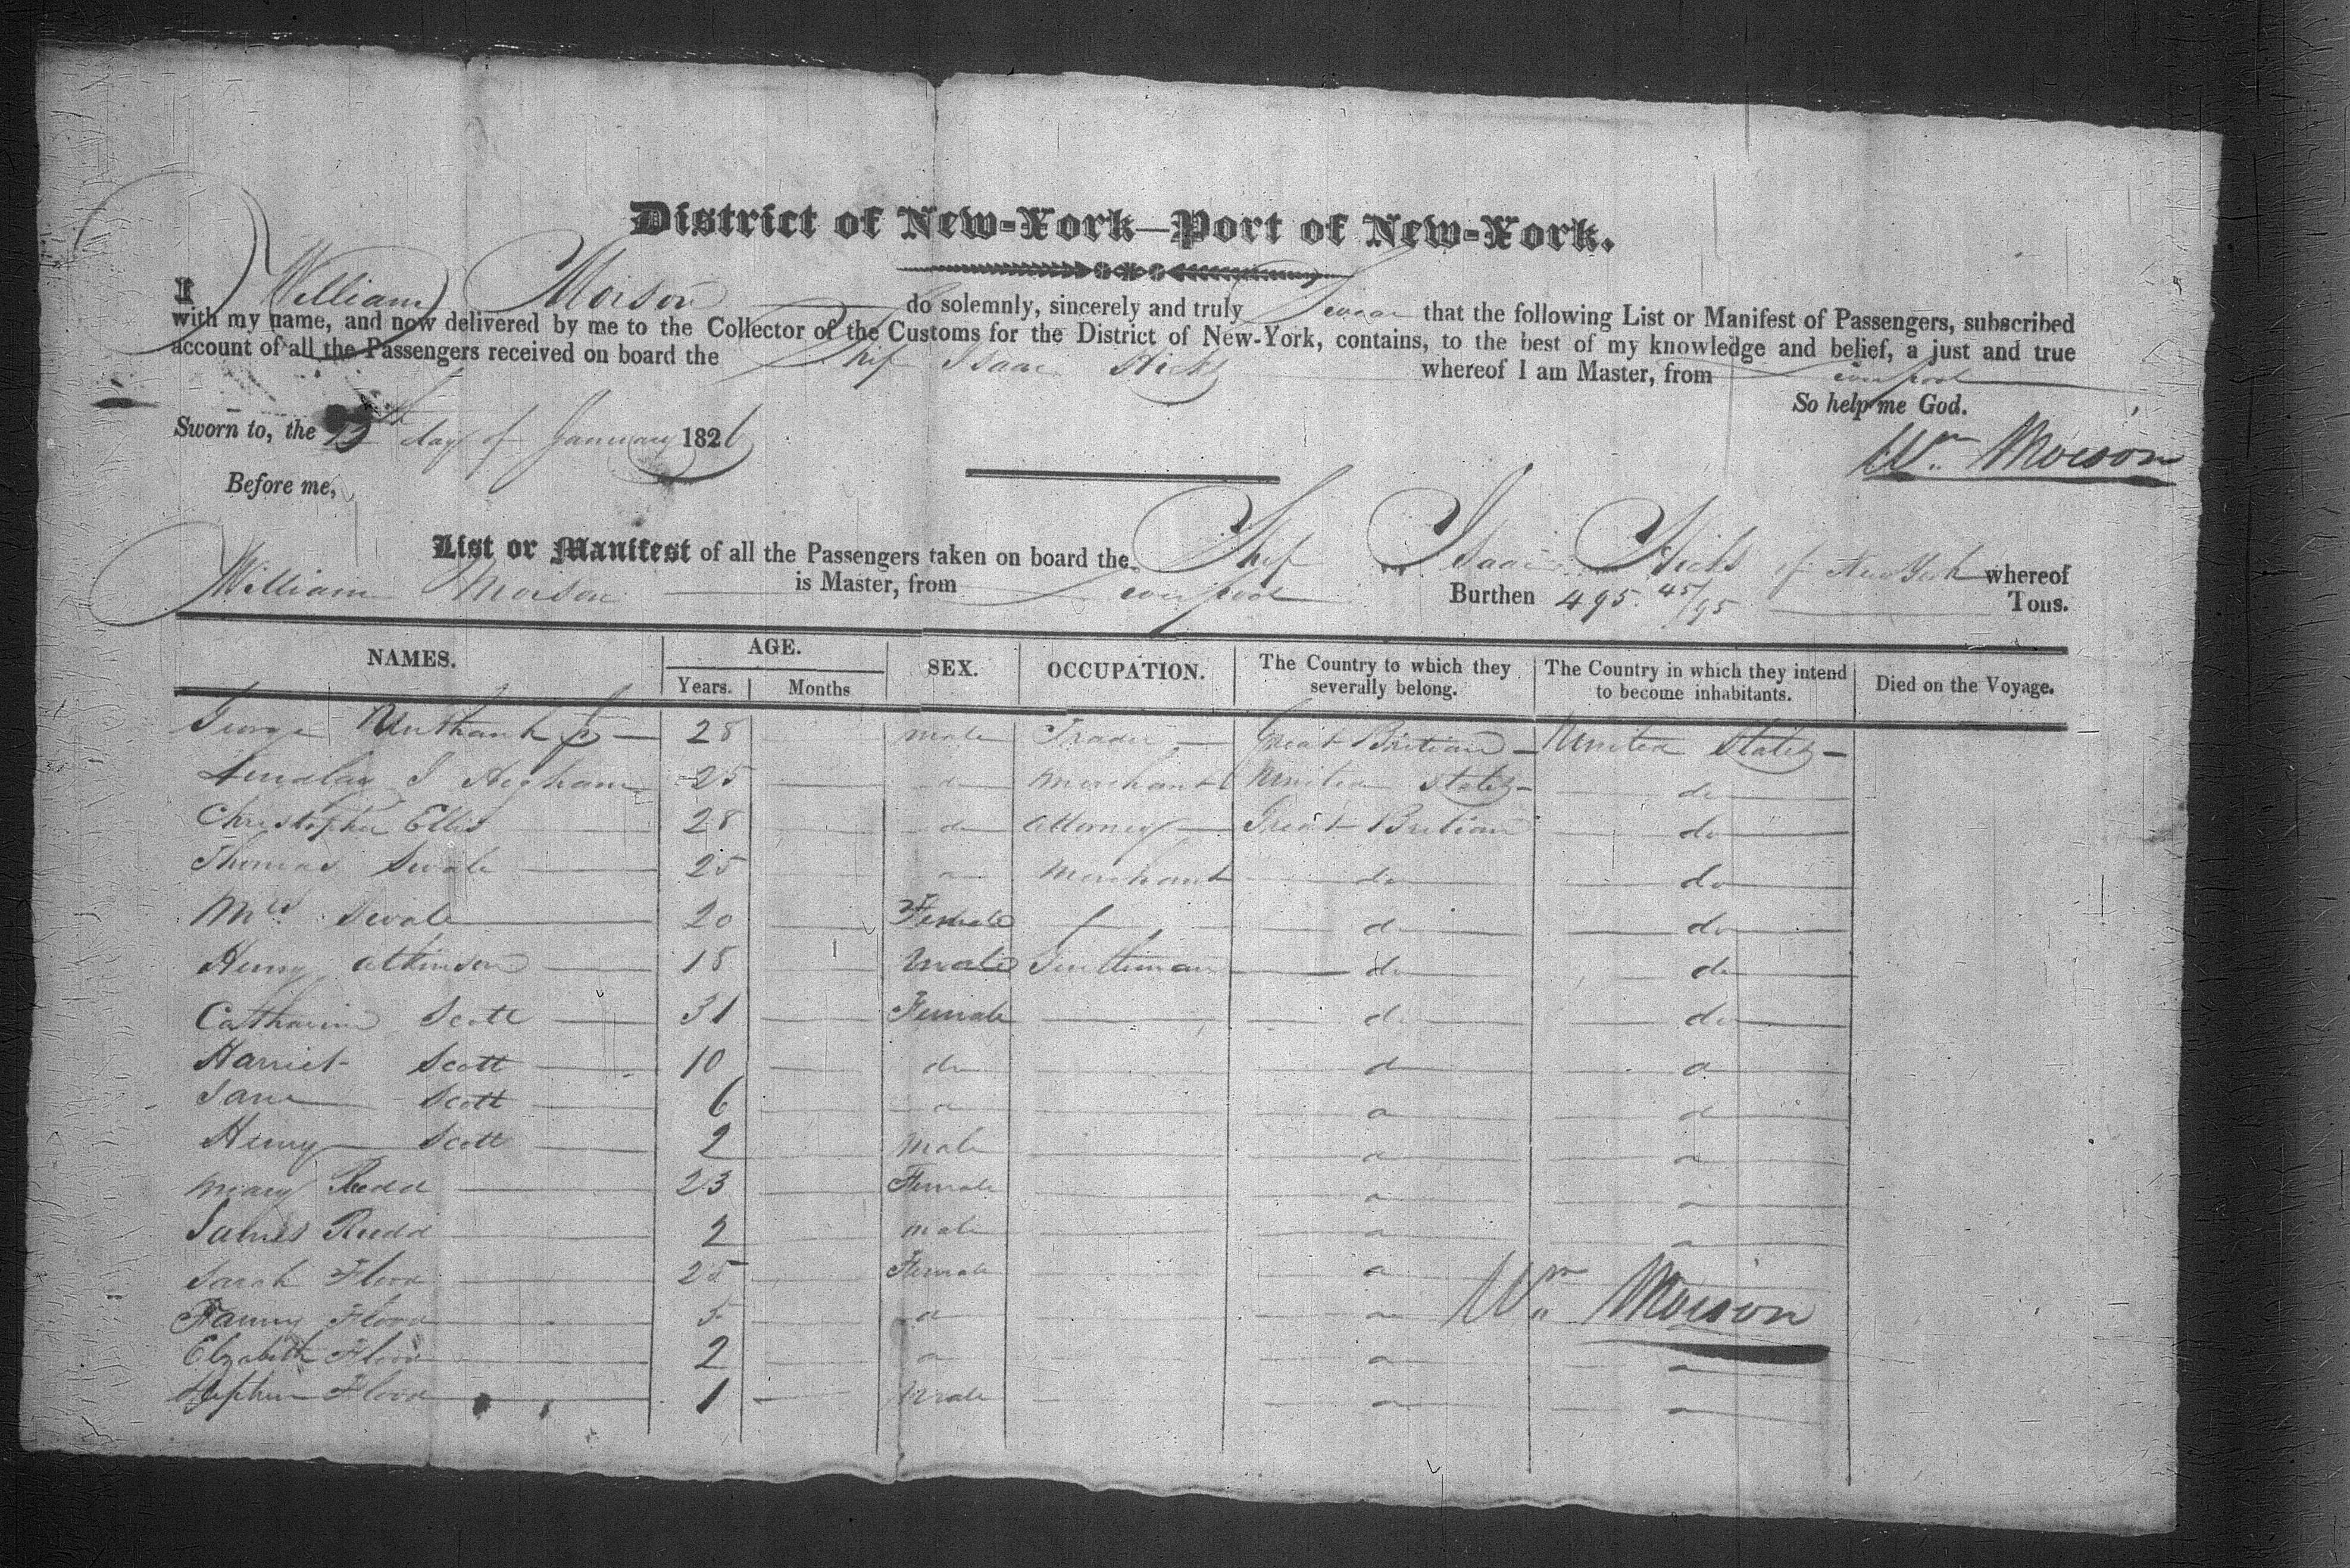 District of New-York—Port of New-York.
I William Moison do solemnly, sincerely and truly Swear that the following List or Manifest of Passengers, subscribed
with my name, and now delivered by me to the Collector of the Customs for the District of New-York, contains, to the best of my knowledge and belief, a just and true
account of all the Passengers received on board the Ship Isaac Hicks whereof I am Master, from Liverpool
So help me God.
Sworn to, the day of January 1826
Wm. Moison
Before me,
List or Manifest of all the Passengers taken on board the Ship Isaac Hicks of New York whereof
William Moison is Master, from Liverpool Burthen 495 45/95 Tons.
NAMES. AGE. Years. Months SEX. OCCUPATION. The Country to which they severally belong. The Country in which they intend to become inhabitants. Died on the Voyage.
George Unthank Jr 28 male Trader Great Britian United States
25 do merchant United States do
Christopher Ellis 28 do attorney Great Britian do
Thomas Swale 25 do merchant do do
Mrs Swale 20 Female do do
Henry atkinson 18 Male Gentleman do do
Catharine Scott 31 Female do do
Harriet Scott 10 do do do
Jane Scott 6 do do do
Henry Scott 2 male do do
mary Redd 23 Female do do
James Redd 2 male do do
Sarah Flood 25 Female do
Fanny Flood 5 do do Wm. Moison
Elizabeth Flood 2 do do do
Stephen Flood 1 Male do do